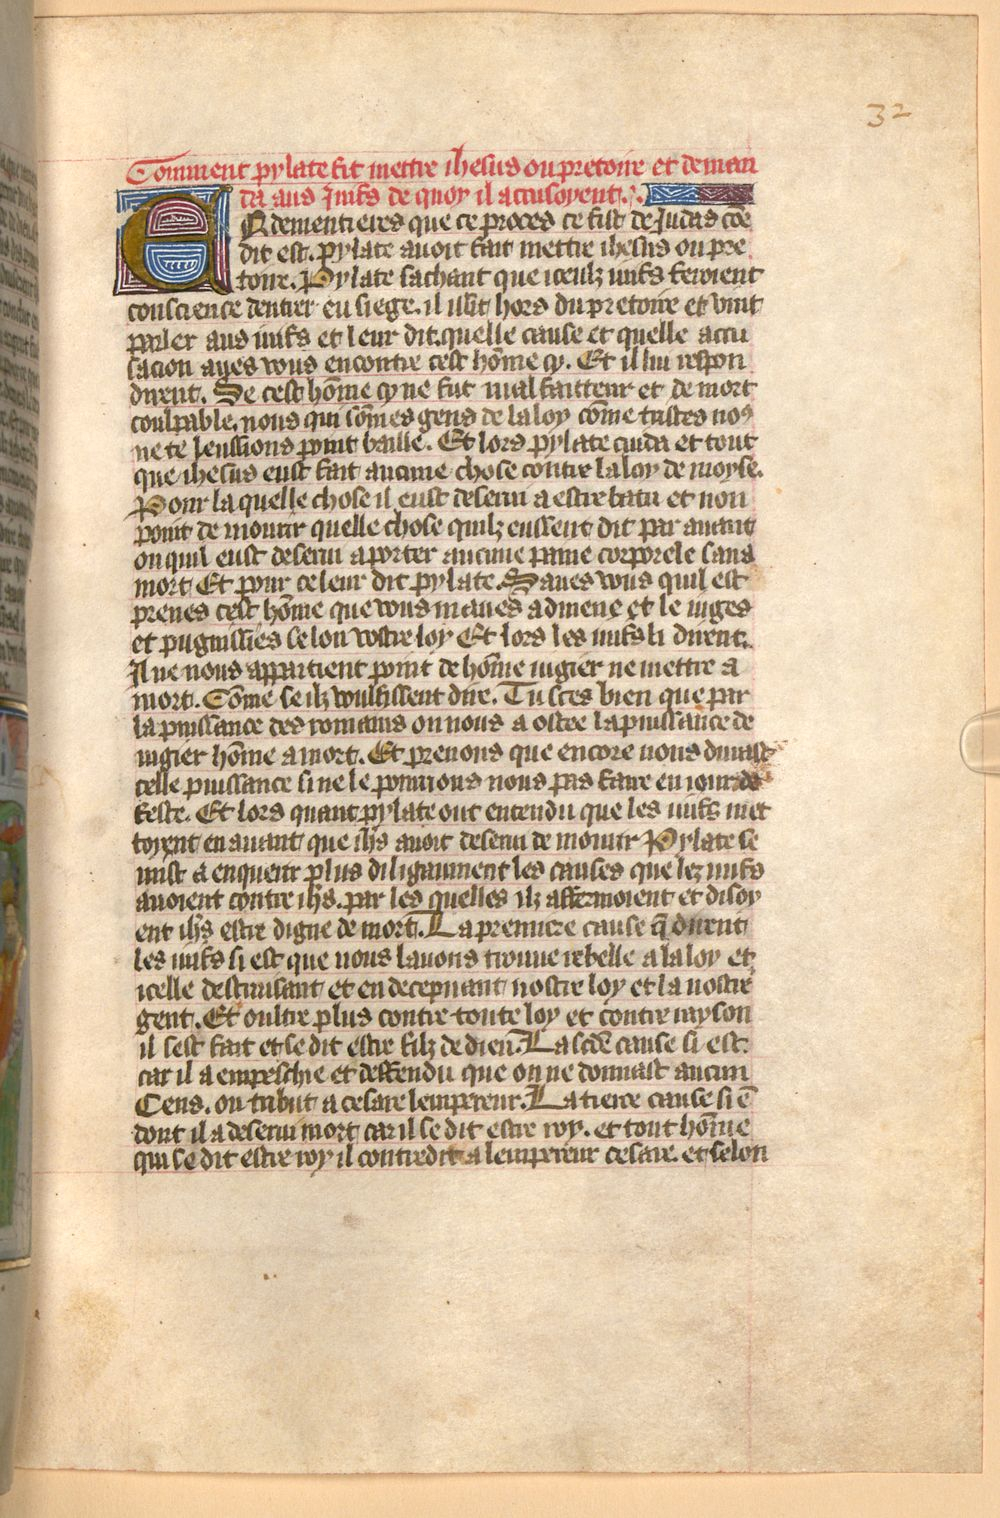 32
Comment pylate fit mettre ihesus ou pretoire et deman
da aus Juifs de quoy il accusoyent.
ENdementieres que ce proces ce fist de Judas cõe
dit est. Pylate auoit fait mettre ihesus ou pre
toire. Pylate sachant que iceulz iuifs feroient
conscience dentrer eu siege. il issit hors du pretoire et vint
parler aus iuifs et leur dit. quelle cause et quelle accu
sacion aues vous encontre cest hõme cy. Et il lui respon
dirent. Se cest hõme cy ne fut malfaitteur et de mort
coulpable. nous qui sõmes gens de la loy cõme iustes noꝰ
ne te leussions point baille. Et lors pylate cuida et tout
que ihesus eust fait aucune chose contre la loy de moyse.
Pour la quelle chose il eust deserui a estre batu et non
point de mourir quelle chose quilz eussent dit par auant
ou quil eust deserui a porter aucune paine corporele sans
mort Et pour ce leur dit pylate. Saues vous quil est
prenes cest hõme que vous maues admene et le iuges
et pugnissies selon vostre loy Et lors les iuifs li dirent.
Il ne nous appartient point de hõme iugier ne mettre a
mort. Cõme se ilz voulsissent dire. Tu sces bien que par
la puissance des romains on nous a ostee la puissance de
iugier hõme a mort. Et prenons que encore nous durast
celle puissance si ne le pourrions nous pas faire en iour de
feste. Et lors quant pylate out entendu que les iuifs met
toyent en auant que ihs auoit deserui de mourir Pylate se
mist a enquerir plus diligaument les causes que lez iuifs
auoient contre ihs. par les quelles ilz affermoient et disoy
ent ihs estre digne de mort. La premiere cause q̃ dirent
les iuifs si est que nous lauons trouue rebelle a la loy et
icelle destruisant et en decepuant nostre loy et la nostre
gent. Et oultre plus contre toute loy et contre rayson
il sest fait et se dit estre filz de dieu. La scde cause si est.
car il a empeschie et deffendu que on ne donnast aucun
Cens. ou tribut a cesare lempereur. La tierce cause si ẽ
dont il a deserui mort car il se dit estre roy. et tout hõme
qui se dit estre roy il contredit a lempereur cesare. et selon